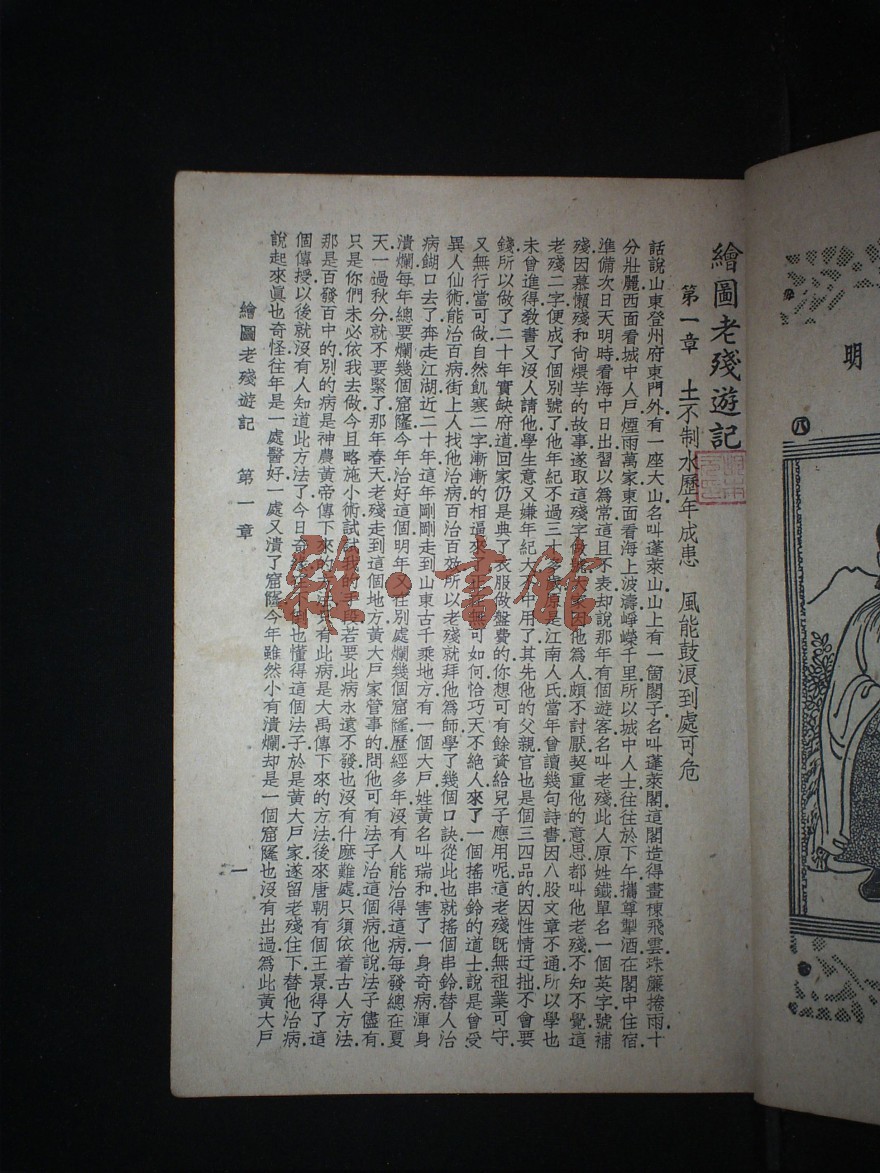 明
八
繪圖老殘遊記
第一章 土不制水歷年成患 風能鼓浪到處可危
話說山東登州府東門外有一座大山名叫蓬萊山山上有一箇閣子名叫蓬萊閣這閣造得畫棟飛雲珠簾捲雨十
分壯麗西面看城中人戶煙雨萬家東面看海上波濤崢嶸千里所以城中人士往往於下午攜尊挈酒在閣中住宿
準備次日天明時看海中日出習以爲常這且不表却說那年有個遊客名叫老殘此人原姓鐵單名一個英字號補
殘因慕懶殘和尙煨芋的故事遂取這殘字做號大家因他爲人頗不討厭契重他的意思都叫他老殘不知不覺這
老殘二字便成了個別號了他年紀不過三十多歲原是江南人氏當年曾讀幾句詩書因八股文章不通所以學也
未曾進得敎書又沒人請他學生意又嫌年紀大不中用了其先他的父親官也是個三四品的因性情迂拙不會要
錢所以做了二十年實缺府道回家仍是典了衣服做盤費的你想可有餘資給兒子應用呢這老殘旣無祖業可守
又無行當可做自然飢寒二字漸漸的相逼來了正無可如何恰巧天不絕人來了一個搖串鈴的道士說是曾受
異人仙術能治百病街上人找他治病百治百效所以老殘就拜他爲師學了幾個口訣從此也就搖個串鈴替人治
病餬口去了奔走江湖近二十年這年剛剛走到山東古千乘地方有一個大戶姓黃名叫瑞和害了一身奇病渾身
潰爛每年總要爛幾個窟窿今年治好這個明年又在別處爛幾個窟窿歷經多年沒有人能治得這病每發總在夏
天一過秋分就不要緊了那年春天老殘走到這個地方黃大戶家管事的問他可有法子治這個病他說法子儘有
只是你們未必依我去做今且略施小術試試我的手段若要此病永遠不發也沒有什麼難處只須依着古人方法
那是百發百中的別的病是神農黃帝傳下來的方法只有此病是大禹傳下來的方法後來唐朝有個王景得了這
個傳授以後就沒有人知道此方法了今日奇緣在下倒也懂得這個法子於是黃大戶家遂留老殘住下替他治病
說起來眞也奇怪往年是一處醫好一處又潰了窟窿今年雖然小有潰爛却是一個窟窿也沒有出過爲此黃大戶
繪圖老殘遊記 第一章 一
雜·書館